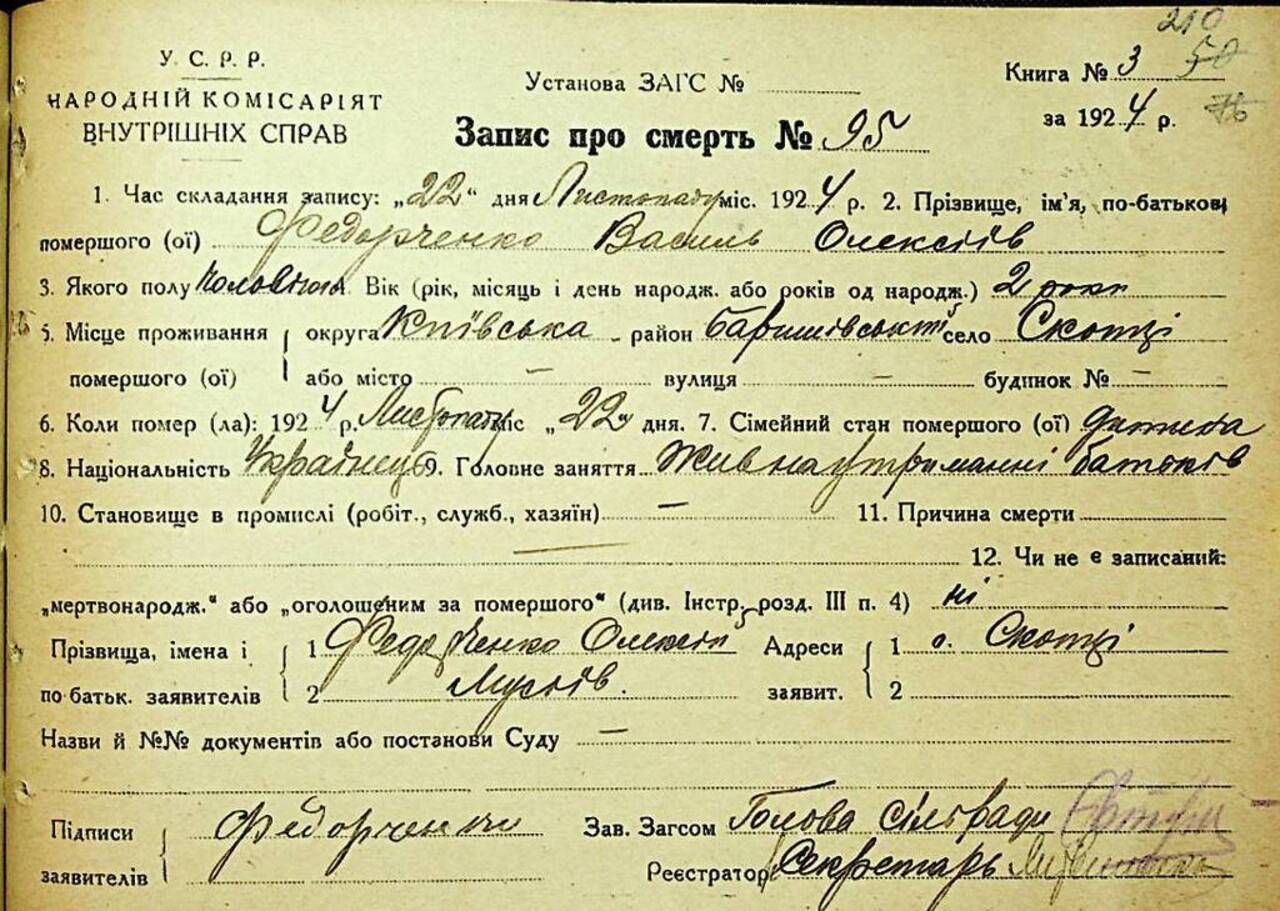 210
У. С. Р. Р.
НАРОДНІЙ КОМІСАРІЯТ
ВНУТРІШНІХ СПРАВ
Установа ЗАГС №
Книга № 3 50
за 1924 р. 76
Запис про смерть № 95
1. Час складання запису: „22“ дня Листопаду міс. 1924 р. 2. Прізвище, ім'я, по-батькові
помершого (ої) Федорченко Василь Олексіїв
3. Якого полу чоловічого Вік (рік, місяць і день народж. або років од народж.) 2 роки
5. Місце проживання округа Київська район Баришівський село Скотці
помершого (ої) або місто — вулиця — будинок № —
6. Коли помер (ла): 1924 р. Листопаду міс „22“ дня. 7. Сімейний стан помершого (ої) дитина
8. Національність Українець 9. Головне заняття Жив на утриманні батьків
10. Становище в промислі (робіт., служб., хазяїн) — 11. Причина смерти
— 12. Чи не є записаний:
„мертвонародж.“ або „оголошеним за помершого“ (див. Інстр. розд. III п. 4) ні
Прізвища, імена і 1 Федорченко Олексій Адреси 1 с. Скотці
по батьк. заявителів 2 Мусіїв. заявит. 2
Назви й №№ документів або постанови Суду —
Підписи Федорченко Зав. Загсом Голова сільради
заявителів Реєстратор Секретарь